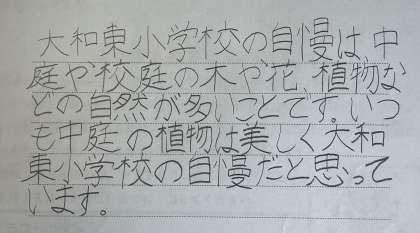 大和東小学校の自慢は、中
庭や校庭の木や、花、植物な
どの自然が多いことです。いつ
も中庭の植物は美しく大和
東小学校の自慢だと思って
います。